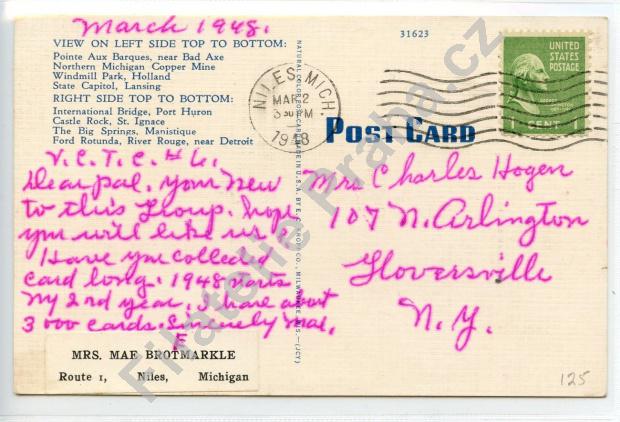 March 1948.
VIEW ON LEFT SIDE TOP TO BOTTOM:
Pointe Aux Barques, near Bad Axe
Northern Michigan Copper Mine
Windmill Park, Holland
State Capitol, Lansing
RIGHT SIDE TOP TO BOTTOM:
International Bridge, Port Huron
Castle Rock, St. Ignace
The Big Springs, Manistique
Ford Rotunda, River Rouge, near Detroit
V.C.T.C. #6.
Dear pal, your new
to this Group. hope
you will like us.
Have you collected
card long. 1948 starts
my 2nd year. I have about
3000 cards. Sincerely Mae.
MRS. MAE BROTMARKLE
Route 1, Niles, Michigan
31623
NILES, MICH.
MAR 2
3 30 PM
1948
UNITED
STATES
POSTAGE
1 CENT 1
POST CARD
Mrs Charles Hogen
107 N. Arlington
Gloversville
N.Y.
125
Filatelie Praha.cz